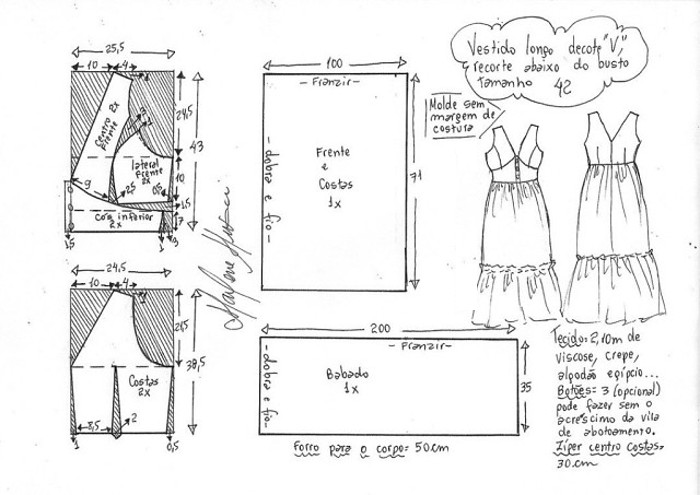 Vestido longo decote "V",
recorte abaixo do busto
Tamanho 42
Molde sem
margem de
costura
25,5
10
4
1
3
1
24,5
43
Centro
Frente 2x
lateral
frente
2x
10
9
2,5
0,5
1,5
Cos inferior
2x
17
1,5
1
3
100
- Franzir -
- dobra e fio -
Frente
e
Costas
1x
71
Marlene Mukai
24,5
10
4
1
21,5
38,5
Costas
2x
8,5
2
1
0,5
200
- Franzir -
- dobra e fio -
Babado
1x
35
Forro para o corpo: 50cm
Tecido: 2,10m de
viscose, crepe,
algodão egípcio...
Botões= 3 (opcional)
pode fazer sem o
acréscimo da vila
de abotoamento.
Zíper centro costas=
30cm